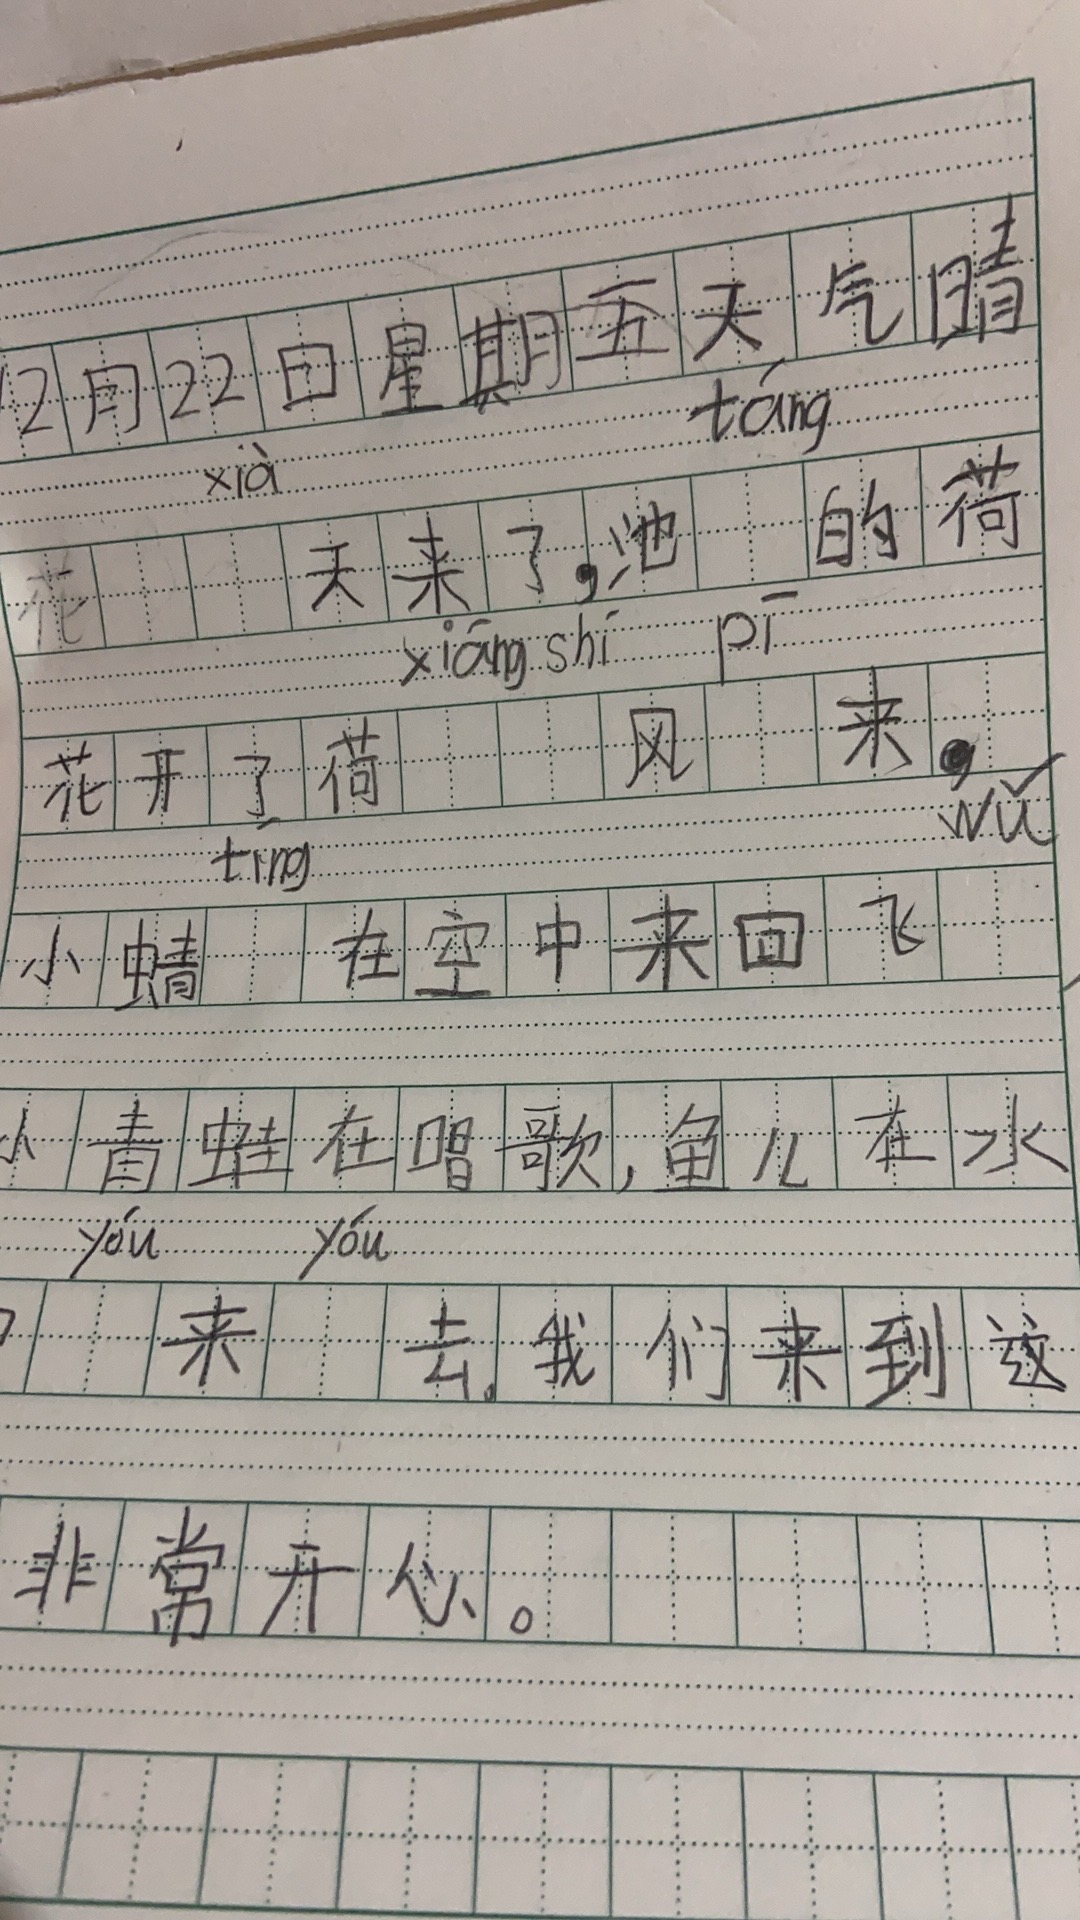 12月22日星期五天气晴
xià táng
花 天来了,池 的荷
xiāng shí pī
花开了荷 风 来,
tíng wǔ
小蜻 在空中来回飞
小青蛙在唱歌,鱼儿在水
yóu yóu
来 去。我们来到这
非常开心。